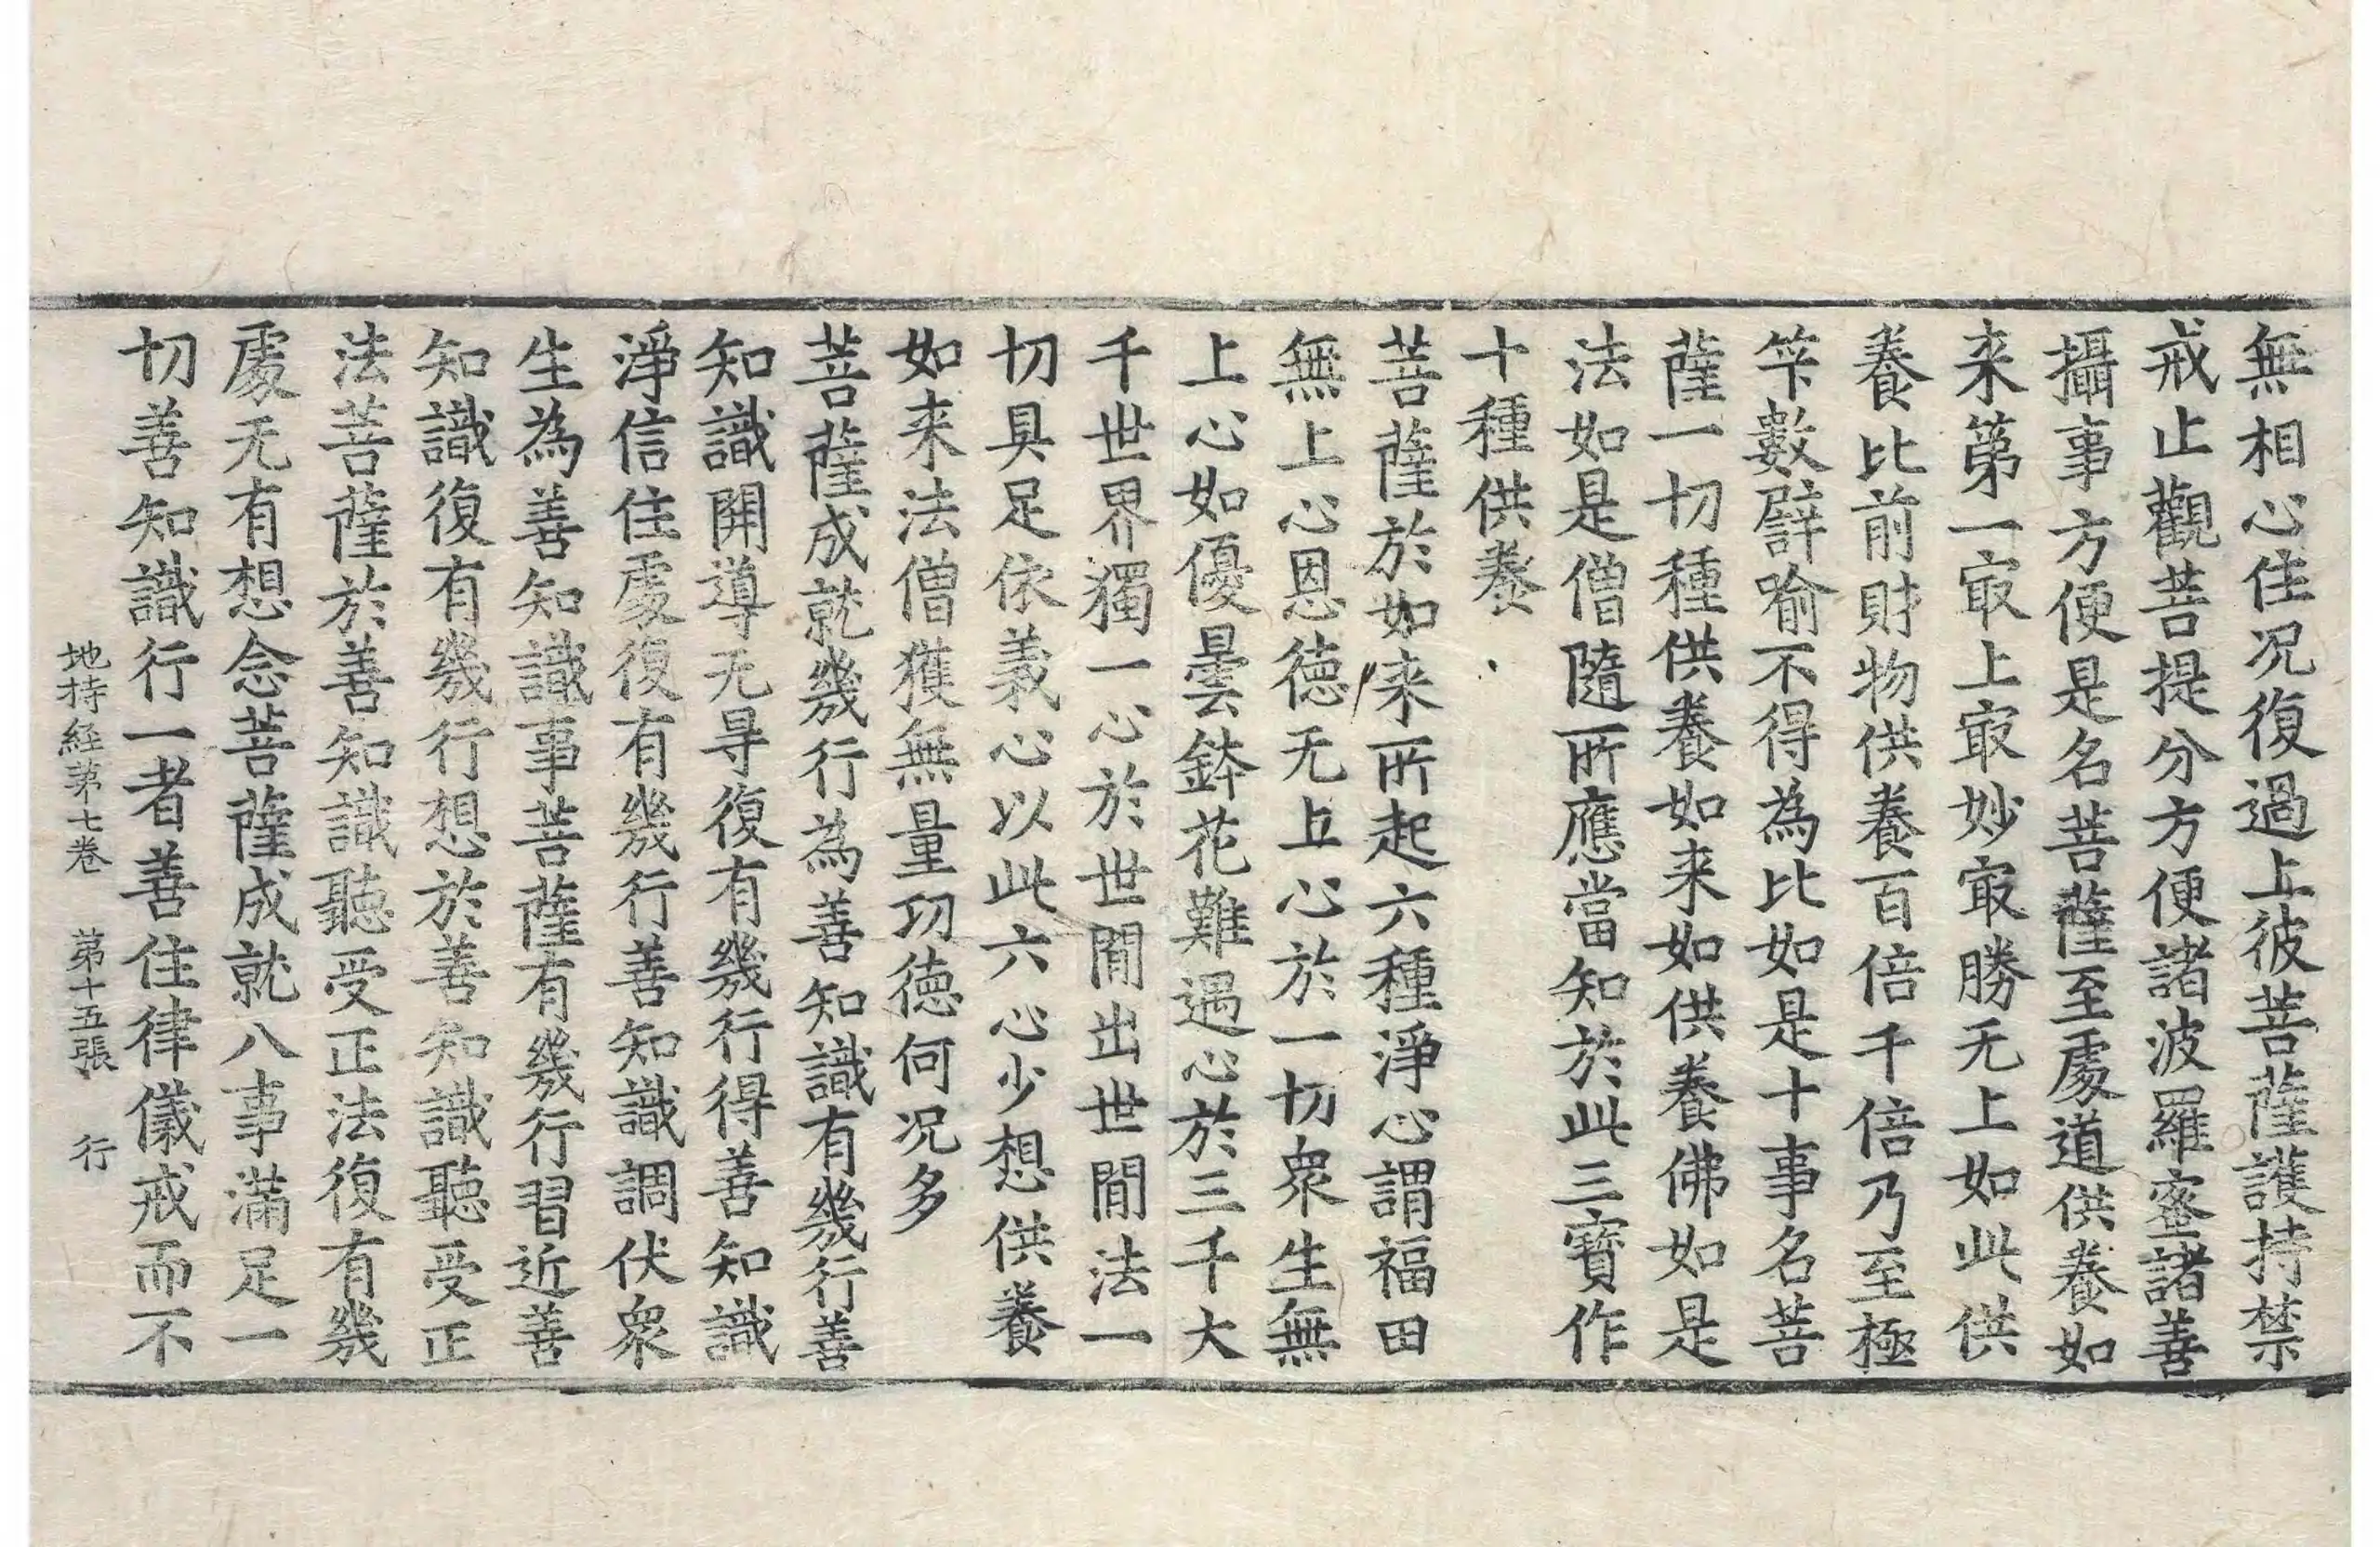 無相心住况復過上彼菩薩護持禁
戒止觀菩提分方便諸波羅蜜諸善
攝事方便是名菩薩至處道供養如
来第一㝡上㝡妙㝡勝无上如此供
養比前財物供養百倍千倍乃至極
笇數譬喻不得為比如是十事名菩
薩一切種供養如来如供養佛如是
法如是僧隨所應當知於此三寶作
十種供養
菩薩於如来所起六種淨心謂福田
無上心恩德无上心於一切衆生無
上心如優曇鉢花難遇心於三千大
千世界獨一心於世閒出世閒法一
切具足依義心以此六心少想供養
如来法僧獲無量功德何况多
菩薩成就幾行為善知識有幾行善
知識開導无㝵復有幾行得善知識
淨信住處復有幾行善知識調伏衆
生為善知識事菩薩有幾行習近善
知識復有幾行想於善知識聽受正
法菩薩於善知識聽受正法復有幾
處无有想念菩薩成就八事滿足一
切善知識行一者善住律儀戒而不
地持經第七卷　第十五張　行